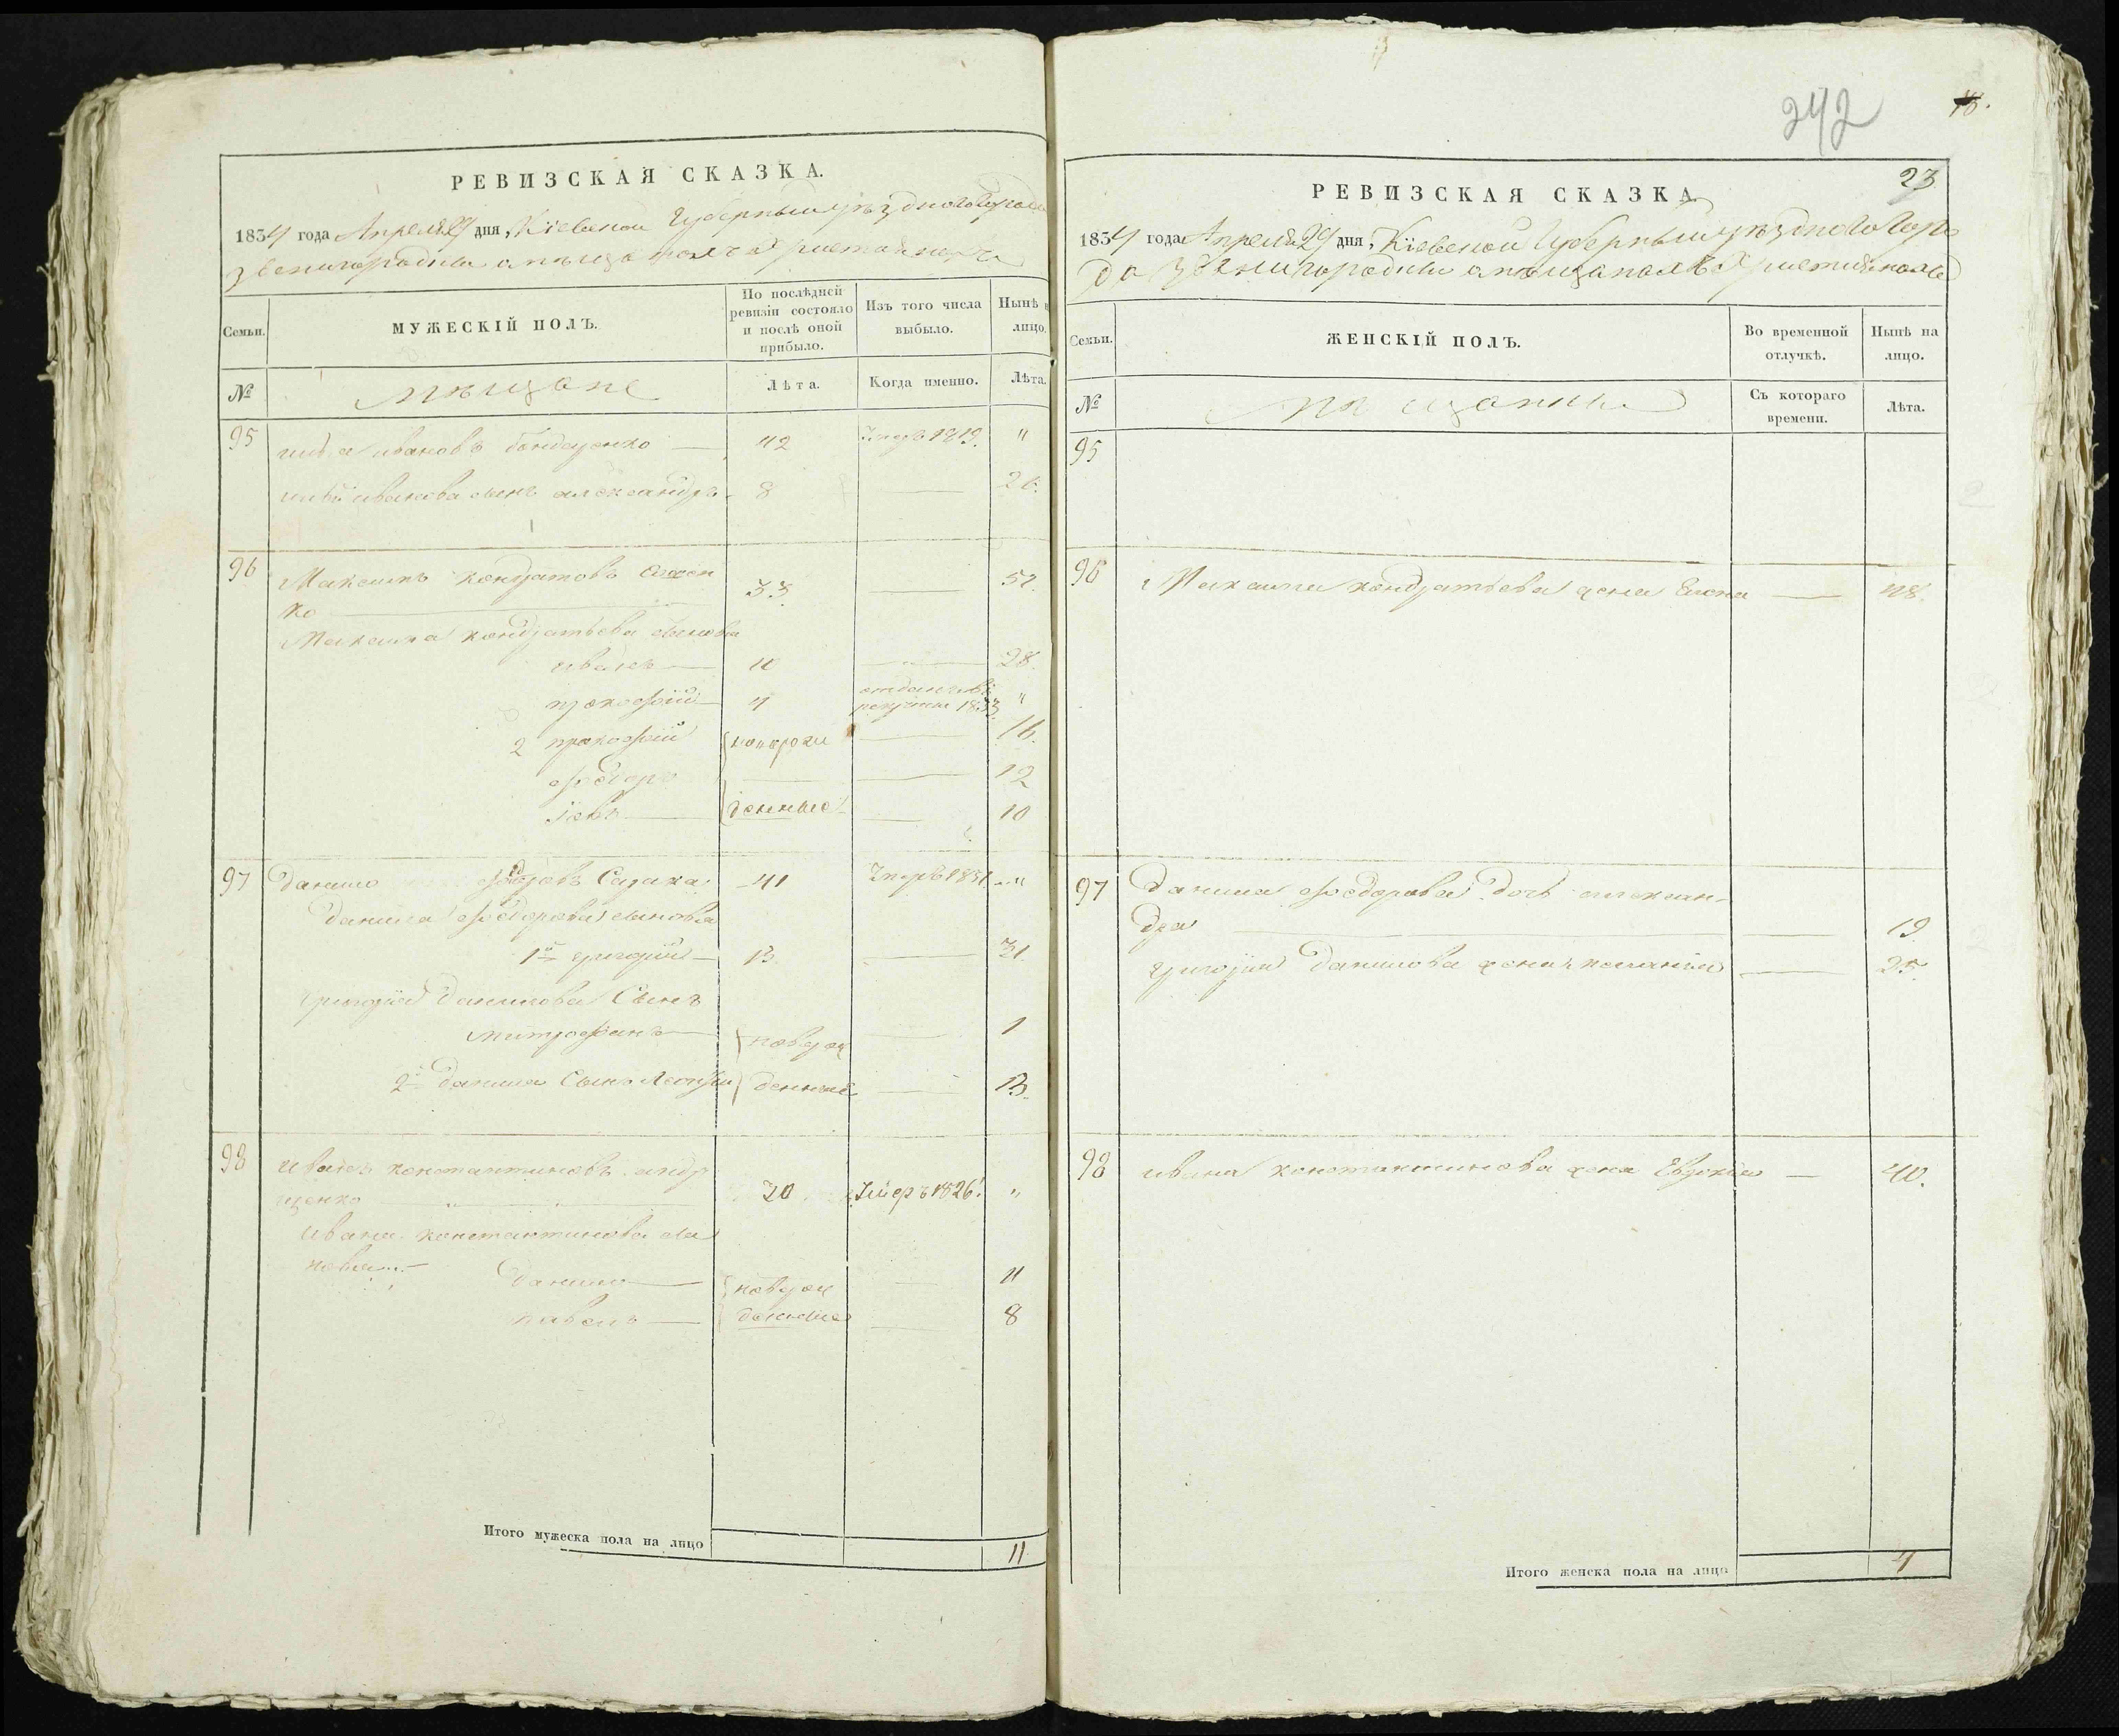 242
РЕВИЗСКАЯ СКАЗКА.
1834 года Апреля 29 дня, Кіевской Губерніи уѣзднаго города
Звенигородки о мѣщанахъ христианахъ
Семьи.
МУЖЕСКІЙ ПОЛЪ.
По послѣдней ревизіи состояло и послѣ оной прибыло.
Изъ того числа выбыло.
Нынѣ на лицо.
№
Мѣщане
Лѣта.
Когда именно.
Лѣта.
95
Ивановъ 42 умеръ 1819. "
Иванова сынъ александръ 8 26.
96
Максимъ кондратовъ
ко 33 51.
Максима кондратьева сыновья
иванъ 11 28.
прокофій 4 отданъ въ рекруты 1833 "
2 прокофій новорож 16.
федоръ 12
Іевъ денные 10
97
Данило федоровъ 41 умеръ 1831 "
Данила федорова сыновья
1й григорій 13. 31.
григорія Данилова Сынъ
митрофанъ новорож 1
2й Данила Сынъ денные 13.
98
иванъ константиновъ андр
щенко 30 умеръ 1826. "
ивана константинова сы
новья Данило новорож 11
павелъ денные 8
Итого мужеска пола на лицо 11
23
РЕВИЗСКАЯ СКАЗКА
1834 года Апреля 29 дня, Кіевской Губерніи уѣзднаго горо
да Звенигородки о мѣщанахъ христианахъ
Семьи.
ЖЕНСКІЙ ПОЛЪ.
Во временной отлучкѣ.
Нынѣ на лицо.
№
Мѣщанки
Съ котораго времени.
Лѣта.
95
96
Максима кондратьева жена Елена 48.
97
Данила федорова дочь алексан-
дра 19.
григорія Данилова жена 25.
98
ивана константинова жена Евдокія 40.
Итого женска пола на лицо 4